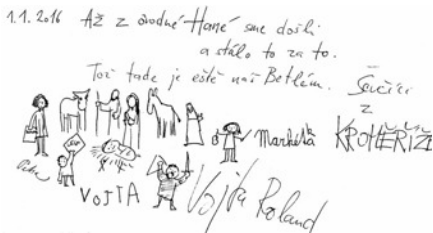 1.1.2016 Až z úrodné Hané sme došli
a stálo to za to.
Tož tade je eště náš Betlém.
Ševčíci
z
KROMĚŘÍŽE
Markéta
VOJTA
Vojta Roland